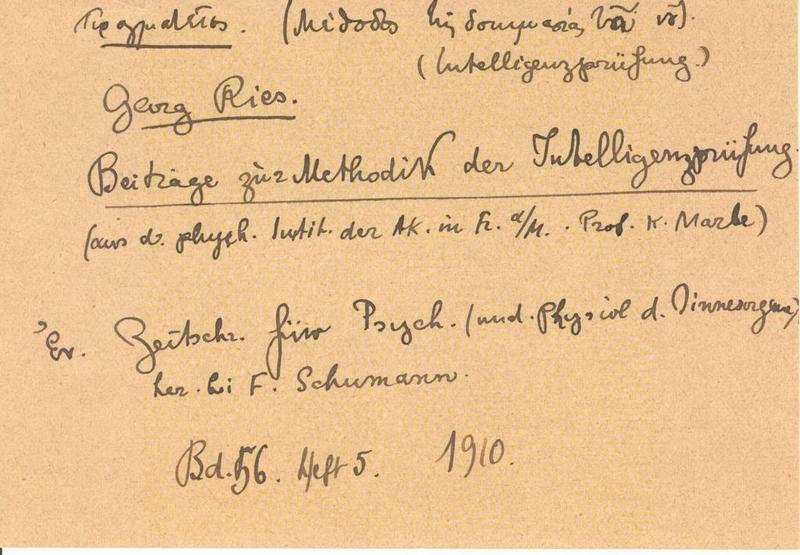 Πραγματεῖαι. (Μέθοδος τῆς δοκιμασίας τοῦ νοῦ).
(Intelligenzprüfung)
Georg Ries.
Beiträge zur Methodik der Intelligenzprüfung.
(aus d. psych. Instit. der Ak. in Fr. a/M. . Prof. K. Marbe)
Ἐν. Zeitschr. für Psych. (und. Physiol d. Sinnesorgane)
her. bei F. Schumann.
Bd. 56. Heft 5. 1910.